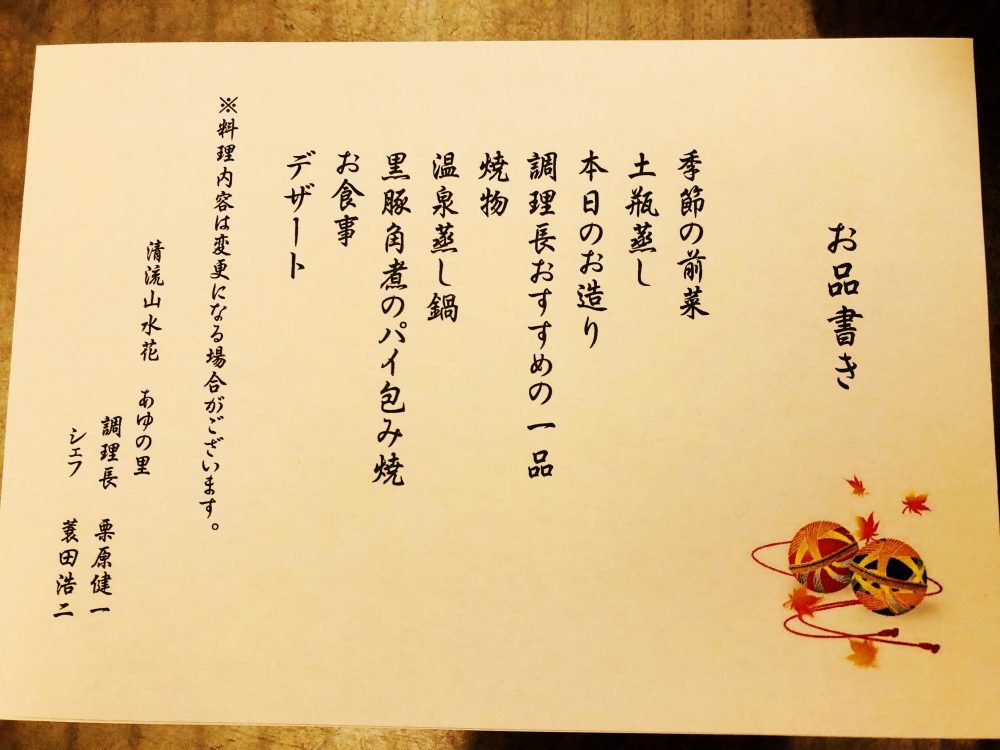 お品書き
季節の前菜
土瓶蒸し
本日のお造り
調理長おすすめの一品
焼物
温泉蒸し鍋
黒豚角煮のパイ包み焼
お食事
デザート
※料理内容は変更になる場合がございます。
清流山水花 あゆの里
調理長 栗原健一
シェフ 蓑田浩二